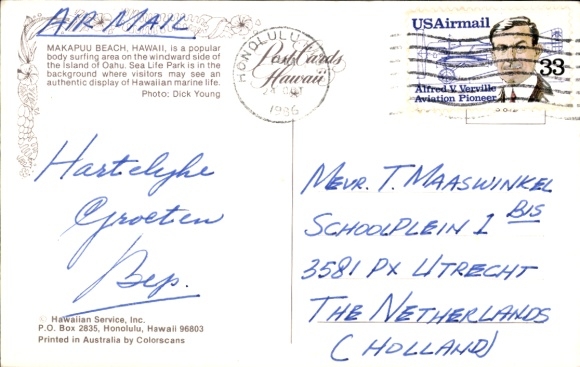 AIR MAIL
MAKAPUU BEACH, HAWAII, is a popular
body surfing area on the windward side of
the Island of Oahu. Sea Life Park is in the
background where visitors may see an
authentic display of Hawaiian marine life.
Photo: Dick Young
Hartelyke
Groeten
Bep.
© Hawaiian Service, Inc.
P.O. Box 2835, Honolulu, Hawaii 96803
Printed in Australia by Colorscans
HONOLULU
OCT
1986
PostCards
Hawaii
USAirmail
33
Alfred V. Verville
Aviation Pioneer
MEVR. T. MAASWINKEL
SCHOOLPLEIN 1 BIS
3581 PX UTRECHT
THE NETHERLANDS
(HOLLAND)